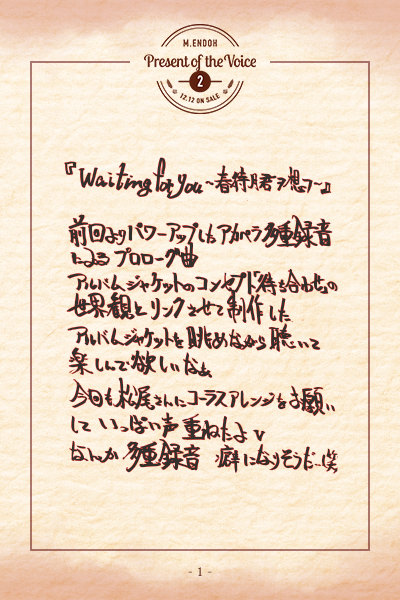 M.ENDOH
Present of the Voice
2
12.12 ON SALE
『Waiting for you～春待月君ヲ想フ～』
前回よりパワーアップしたアカペラ多重録音
によるプロローグ曲
アルバムジャケットのコンセプト待ち合わせの
世界観とリンクさせて制作した
アルバムジャケットを眺めながら聴いて
楽しんで欲しいなぁ
今回も松尾さんにコーラスアレンジをお願い
して いっぱい声重ねたよ∨
なんか多重録音 癖になりそうだ…笑
- 1 -